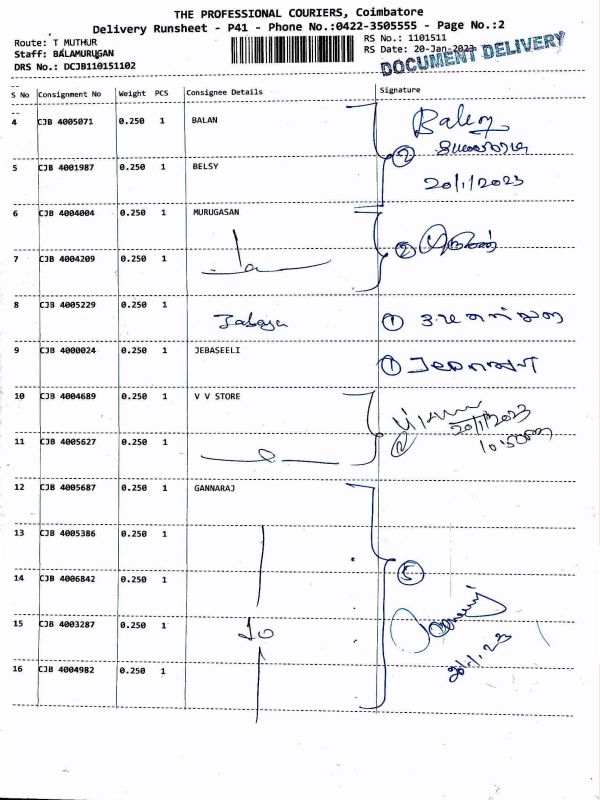 THE PROFESSIONAL COURIERS, Coimbatore
Delivery Runsheet - P41 - Phone No.:0422-3505555 - Page No.:2
Route: T MUTHUR
RS No.: 1101511
Staff: BALAMURUGAN
RS Date: 20-Jan-2023
DRS No.: DCJB110151102
DOCUMENT DELIVERY
S No Consignment No Weight PCS Consignee Details Signature
4 CJB 4005071 0.250 1 BALAN
5 CJB 4001987 0.250 1 BELSY
2
20/1/2023
6 CJB 4004004 0.250 1 MURUGASAN
7 CJB 4004209 0.250 1
2
8 CJB 4005229 0.250 1
1
9 CJB 4000024 0.250 1 JEBASEELI
1
10 CJB 4004689 0.250 1 V V STORE
20/1/2023
11 CJB 4005627 0.250 1
2
12 CJB 4005687 0.250 1 GANNARAJ
13 CJB 4005386 0.250 1
14 CJB 4006842 0.250 1
5
15 CJB 4003287 0.250 1
16 CJB 4004982 0.250 1
20.1.23